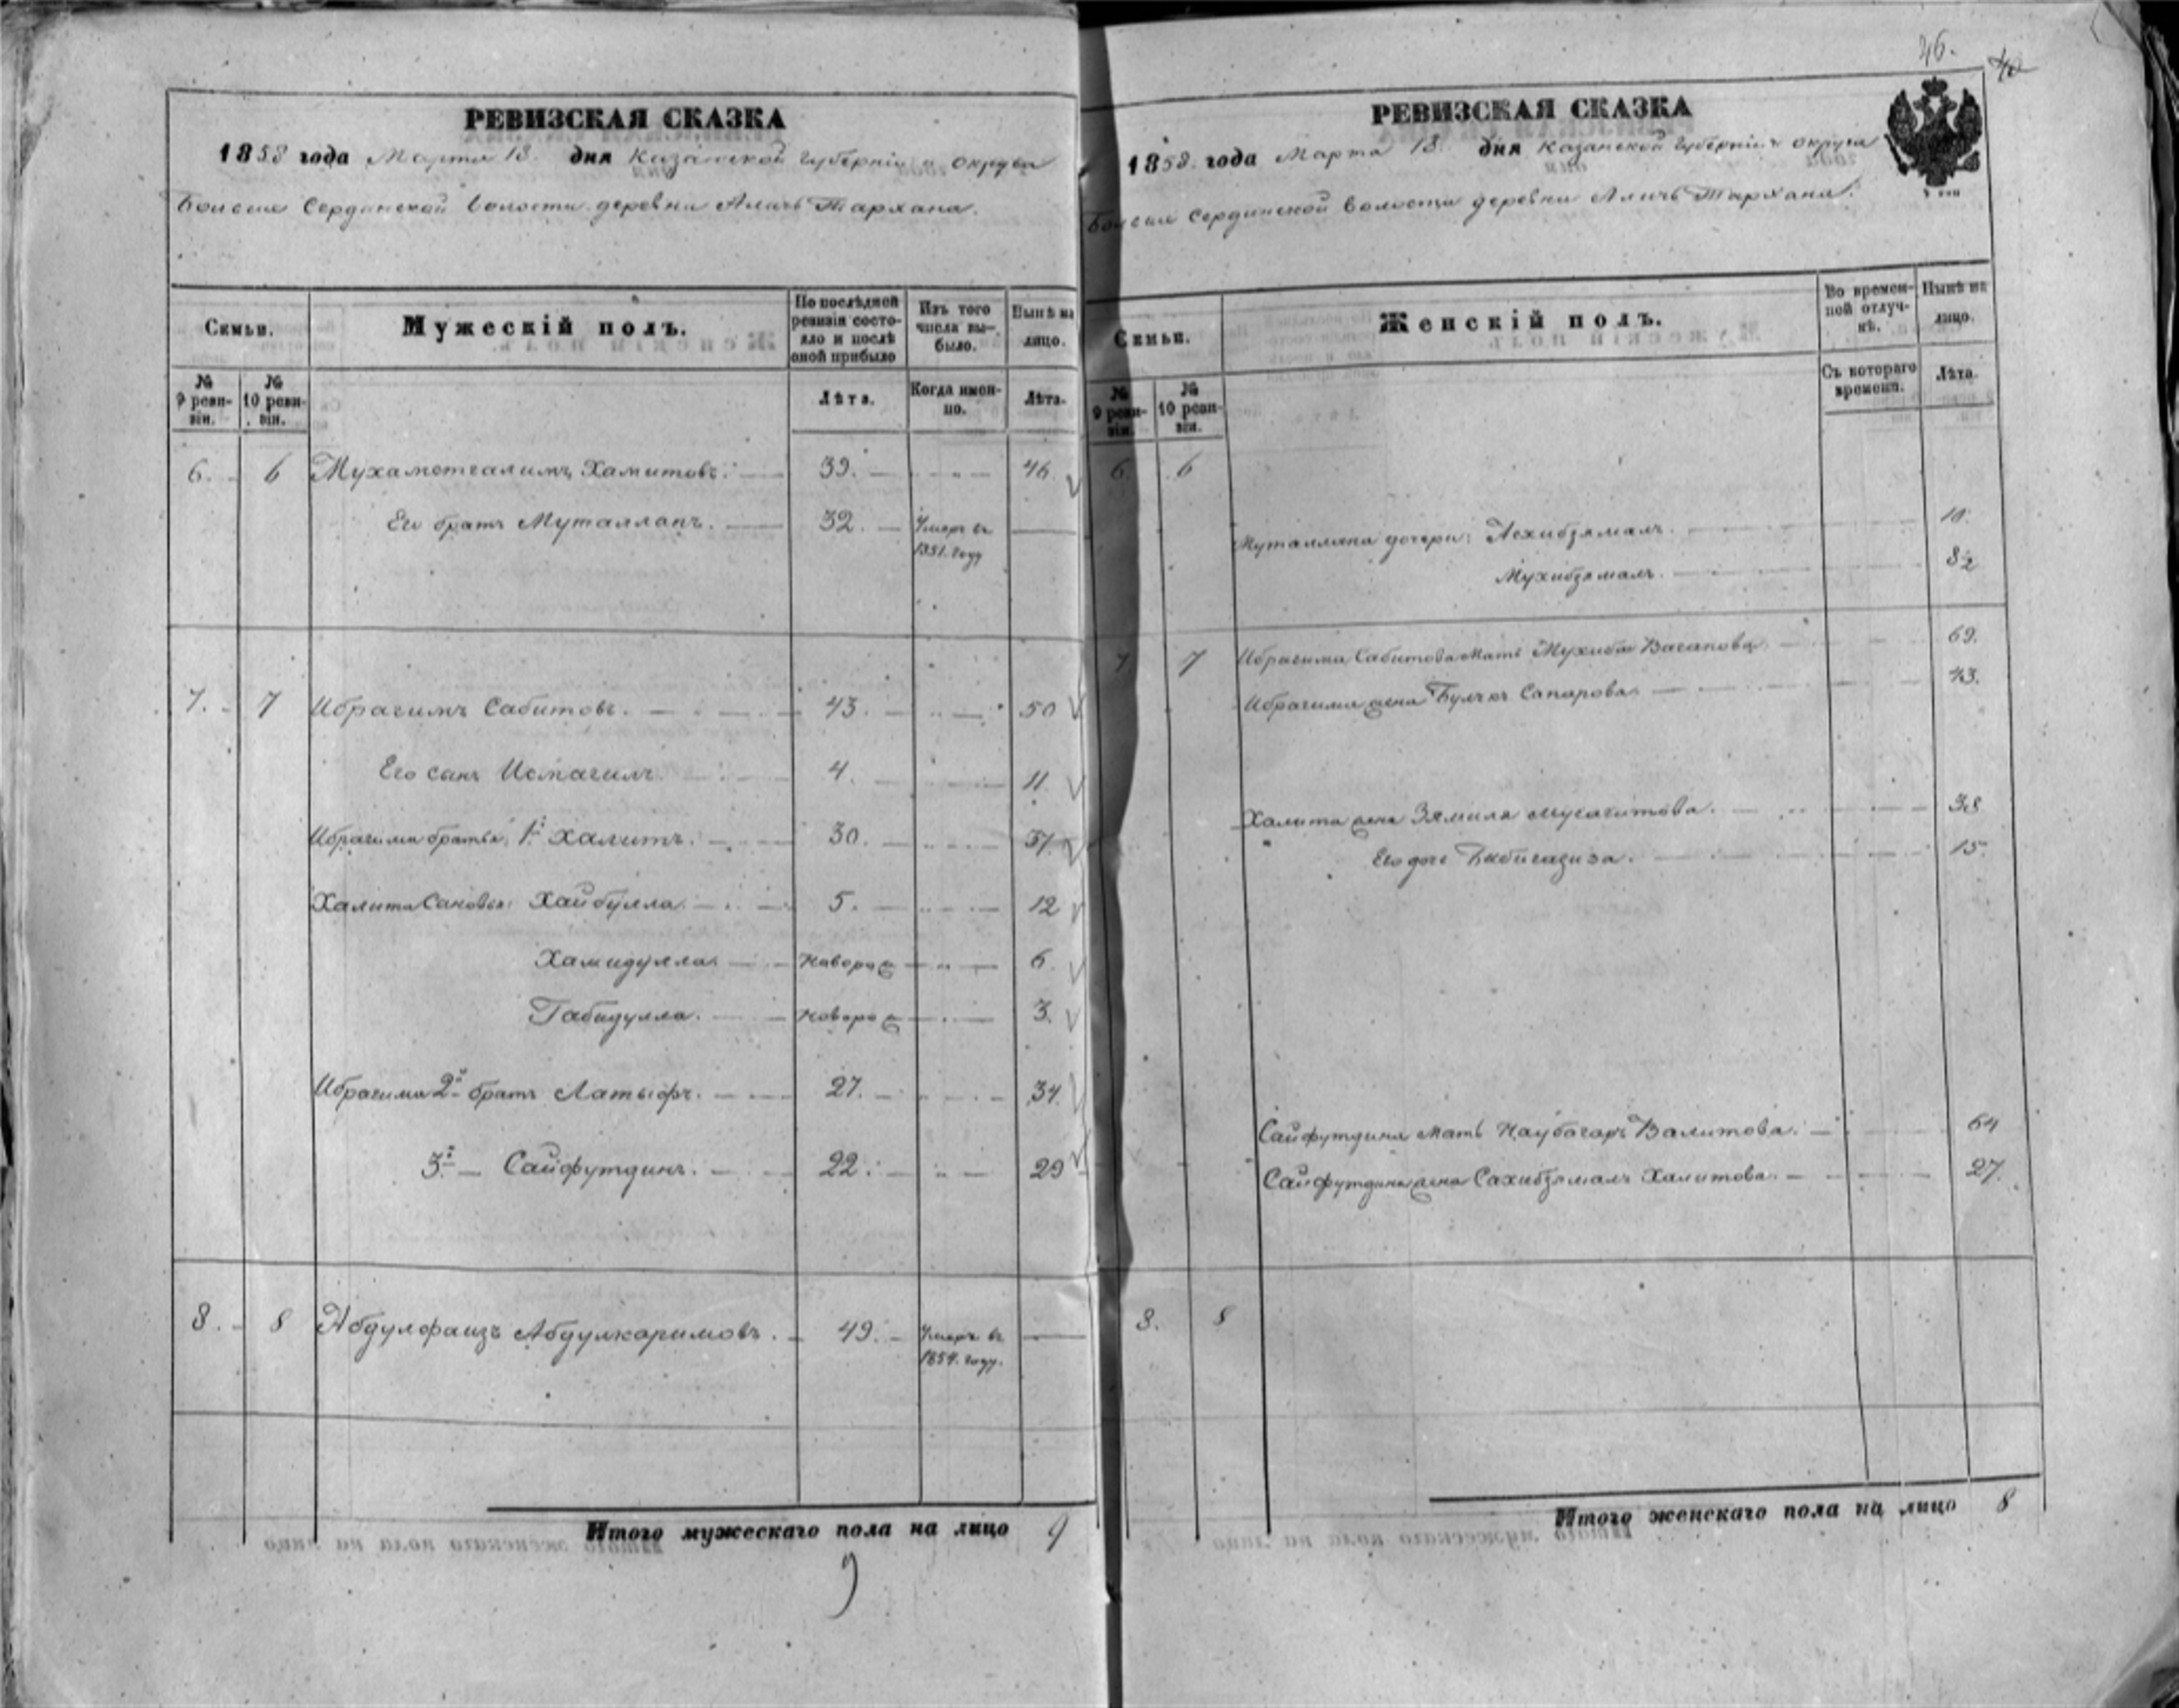 46.
РЕВИЗСКАЯ СКАЗКА
1858 года Марта 18. дня Казанской губерніи и округа
Больше Сердинской волости деревни Аличь Тархана.
Семьи.
Мужескій полъ.
По послѣдней ревизіи состояло и послѣ оной прибыло
Изъ того числа выбыло.
Нынѣ на лицо.
№ 9 ревизіи.
№ 10 ревизіи.
Лѣта.
Когда именно.
Лѣта.
6. 6 Мухаметгалимъ Хамитовъ. 39. 46
Его братъ Муталлапъ. 32. Умеръ въ
1851. году
7. 7 Ибрагимъ Сабитовъ. 43. 50
Его сынъ Исмагилъ. 4. 11.
Ибрагима братья: 1й Халитъ. 30. 37.
Халита Сыновья: Хайбулла. 5. 12
Хамидулла. новорож 6.
Габидулла. новорож 3.
Ибрагима 2й братъ Латыфъ. 27. 34.
3й Сайфутдинъ. 22. 29
8. 8 Абдулфаизъ Абдулкаримовъ. 49. Умеръ въ
1854. году.
Итого мужескаго пола на лицо 9
9
РЕВИЗСКАЯ СКАЗКА
1858. года Марта 18. дня Казанской губерніи и округа
Больше Сердинской волости деревни Аличь Тархана.
Семьи.
Женскій полъ.
Во временной отлучкѣ.
Нынѣ на лицо.
№ 9 ревизіи.
№ 10 ревизіи.
Съ котораго времени.
Лѣта.
6 6
Муталлапа дочери: Асхибзямалъ. 10.
Мухибзямалъ. 8½
7 7 Ибрагима Сабитова мать Мухиба Вагапова 69.
Ибрагима жена Сапарова. 43.
Халита жена Зямиля Мусагитова. 38
Его дочь Бибигазиза. 15.
Сайфутдина мать Наубагаръ Валитова. 64
Сайфутдина жена Сахибзямалъ Халитова. 27.
8. 8
Итого женскаго пола на лицо 8